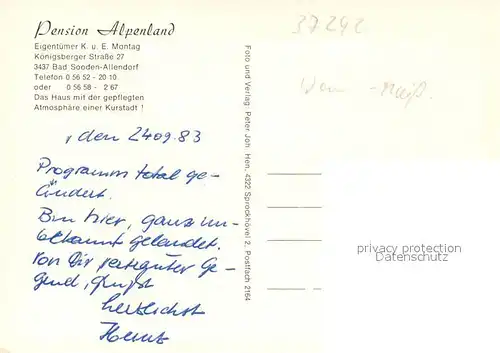 Pension Alpenland
Eigentümer K. u. E. Montag
Königsberger Straße 27
3437 Bad Sooden-Allendorf
Telefon 0 56 52 - 20 10
oder 0 56 58 - 2 67
Das Haus mit der gepflegten
Atmosphäre einer Kurstadt !
, den 24.09.83
Programm total ge-
ändert.
Bin hier, ganz un-
bekannt gelandet.
Von Dir
gend, grüßt
herzlichst
Heinz
Foto und Verlag: Peter Joh. Hen, 4322 Sprockhövel 2, Postfach 2164
37242
privacy protection
Datenschutz